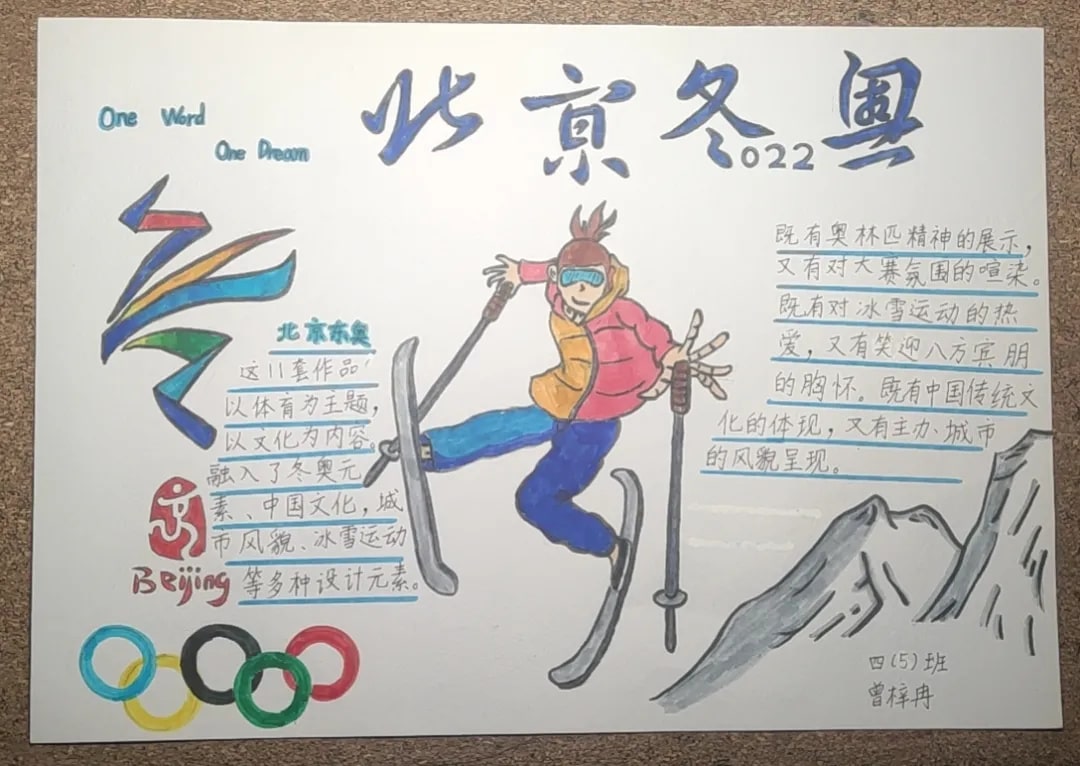 One Word
One Dream
北京冬奥
2022
北京东奥
这11套作品
以体育为主题，
以文化为内容。
融入了冬奥元
素、中国文化，城
市风貌、冰雪运动
等多种设计元素。
Beijing
既有奥林匹精神的展示，
又有对大赛氛围的喧染。
既有对冰雪运动的热
爱，又有笑迎八方宾朋
的胸怀。既有中国传统文
化的体现，又有主办城市
的风貌呈现。
四（5）班
曾梓冉